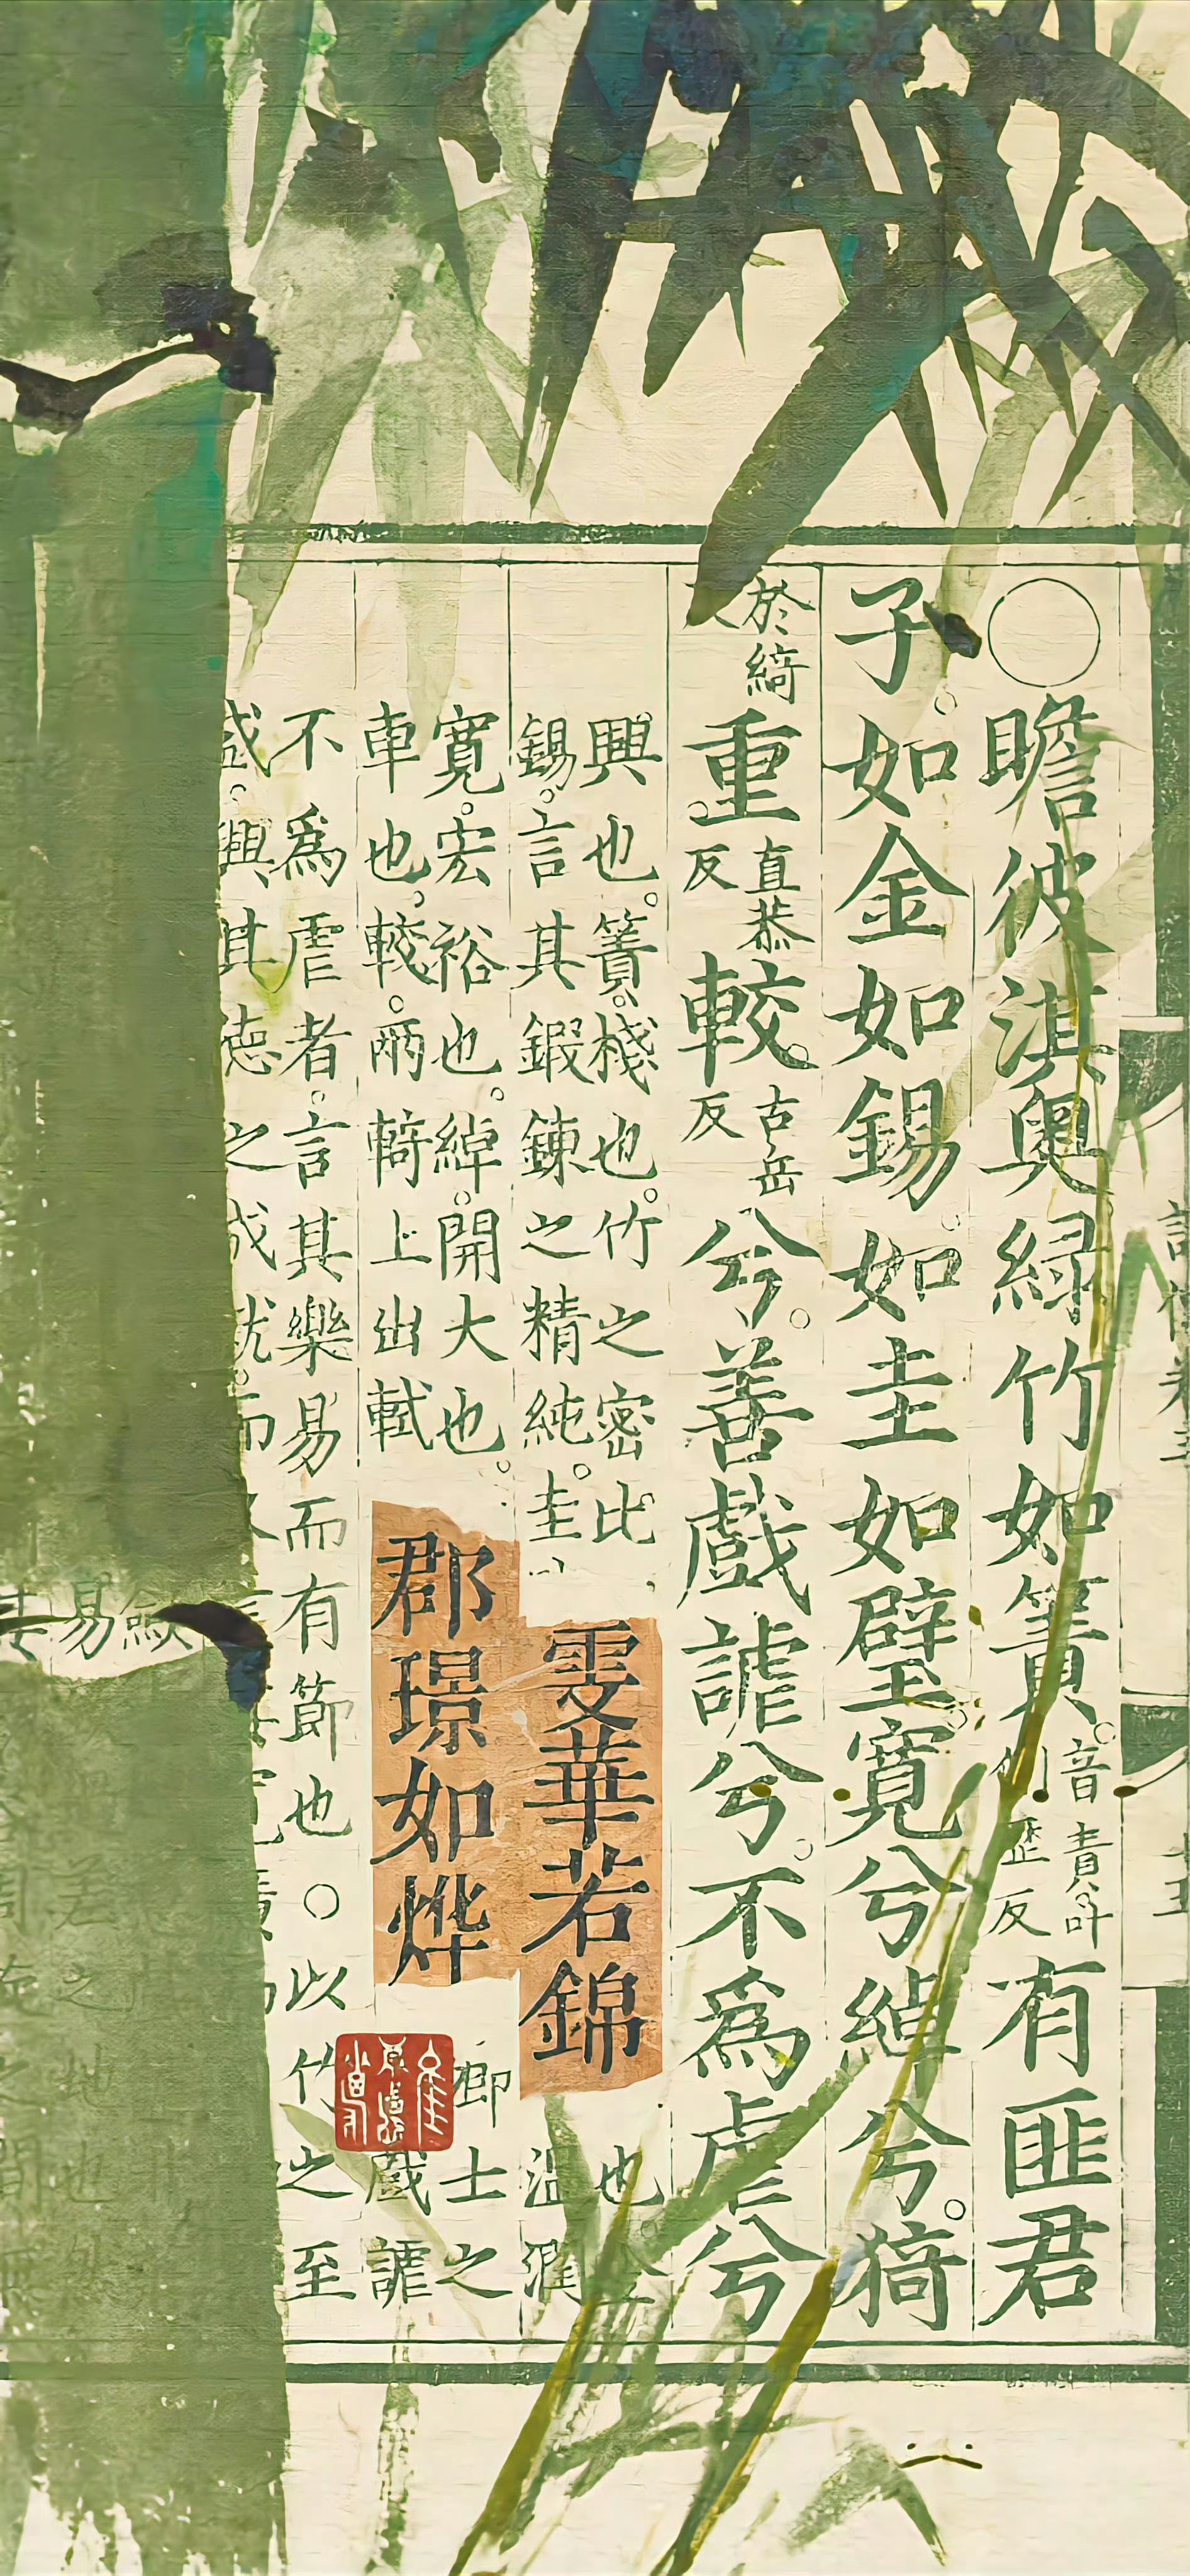 ○瞻彼淇奧綠竹如簀音責叶歷反有匪君
子如金如錫如圭如璧寬兮綽兮猗
於綺重直恭反較古岳反兮善戲謔兮不為虐兮
興也簀棧也竹之密比也
錫言其鍛鍊之精純圭溫潤
雯華若錦
寬宏裕也綽開大也卿士之
車也較兩輢上出軾戲謔
郡璟如烨
不為虐者言其樂易而有節也○以竹之至
盛興其德之成就而